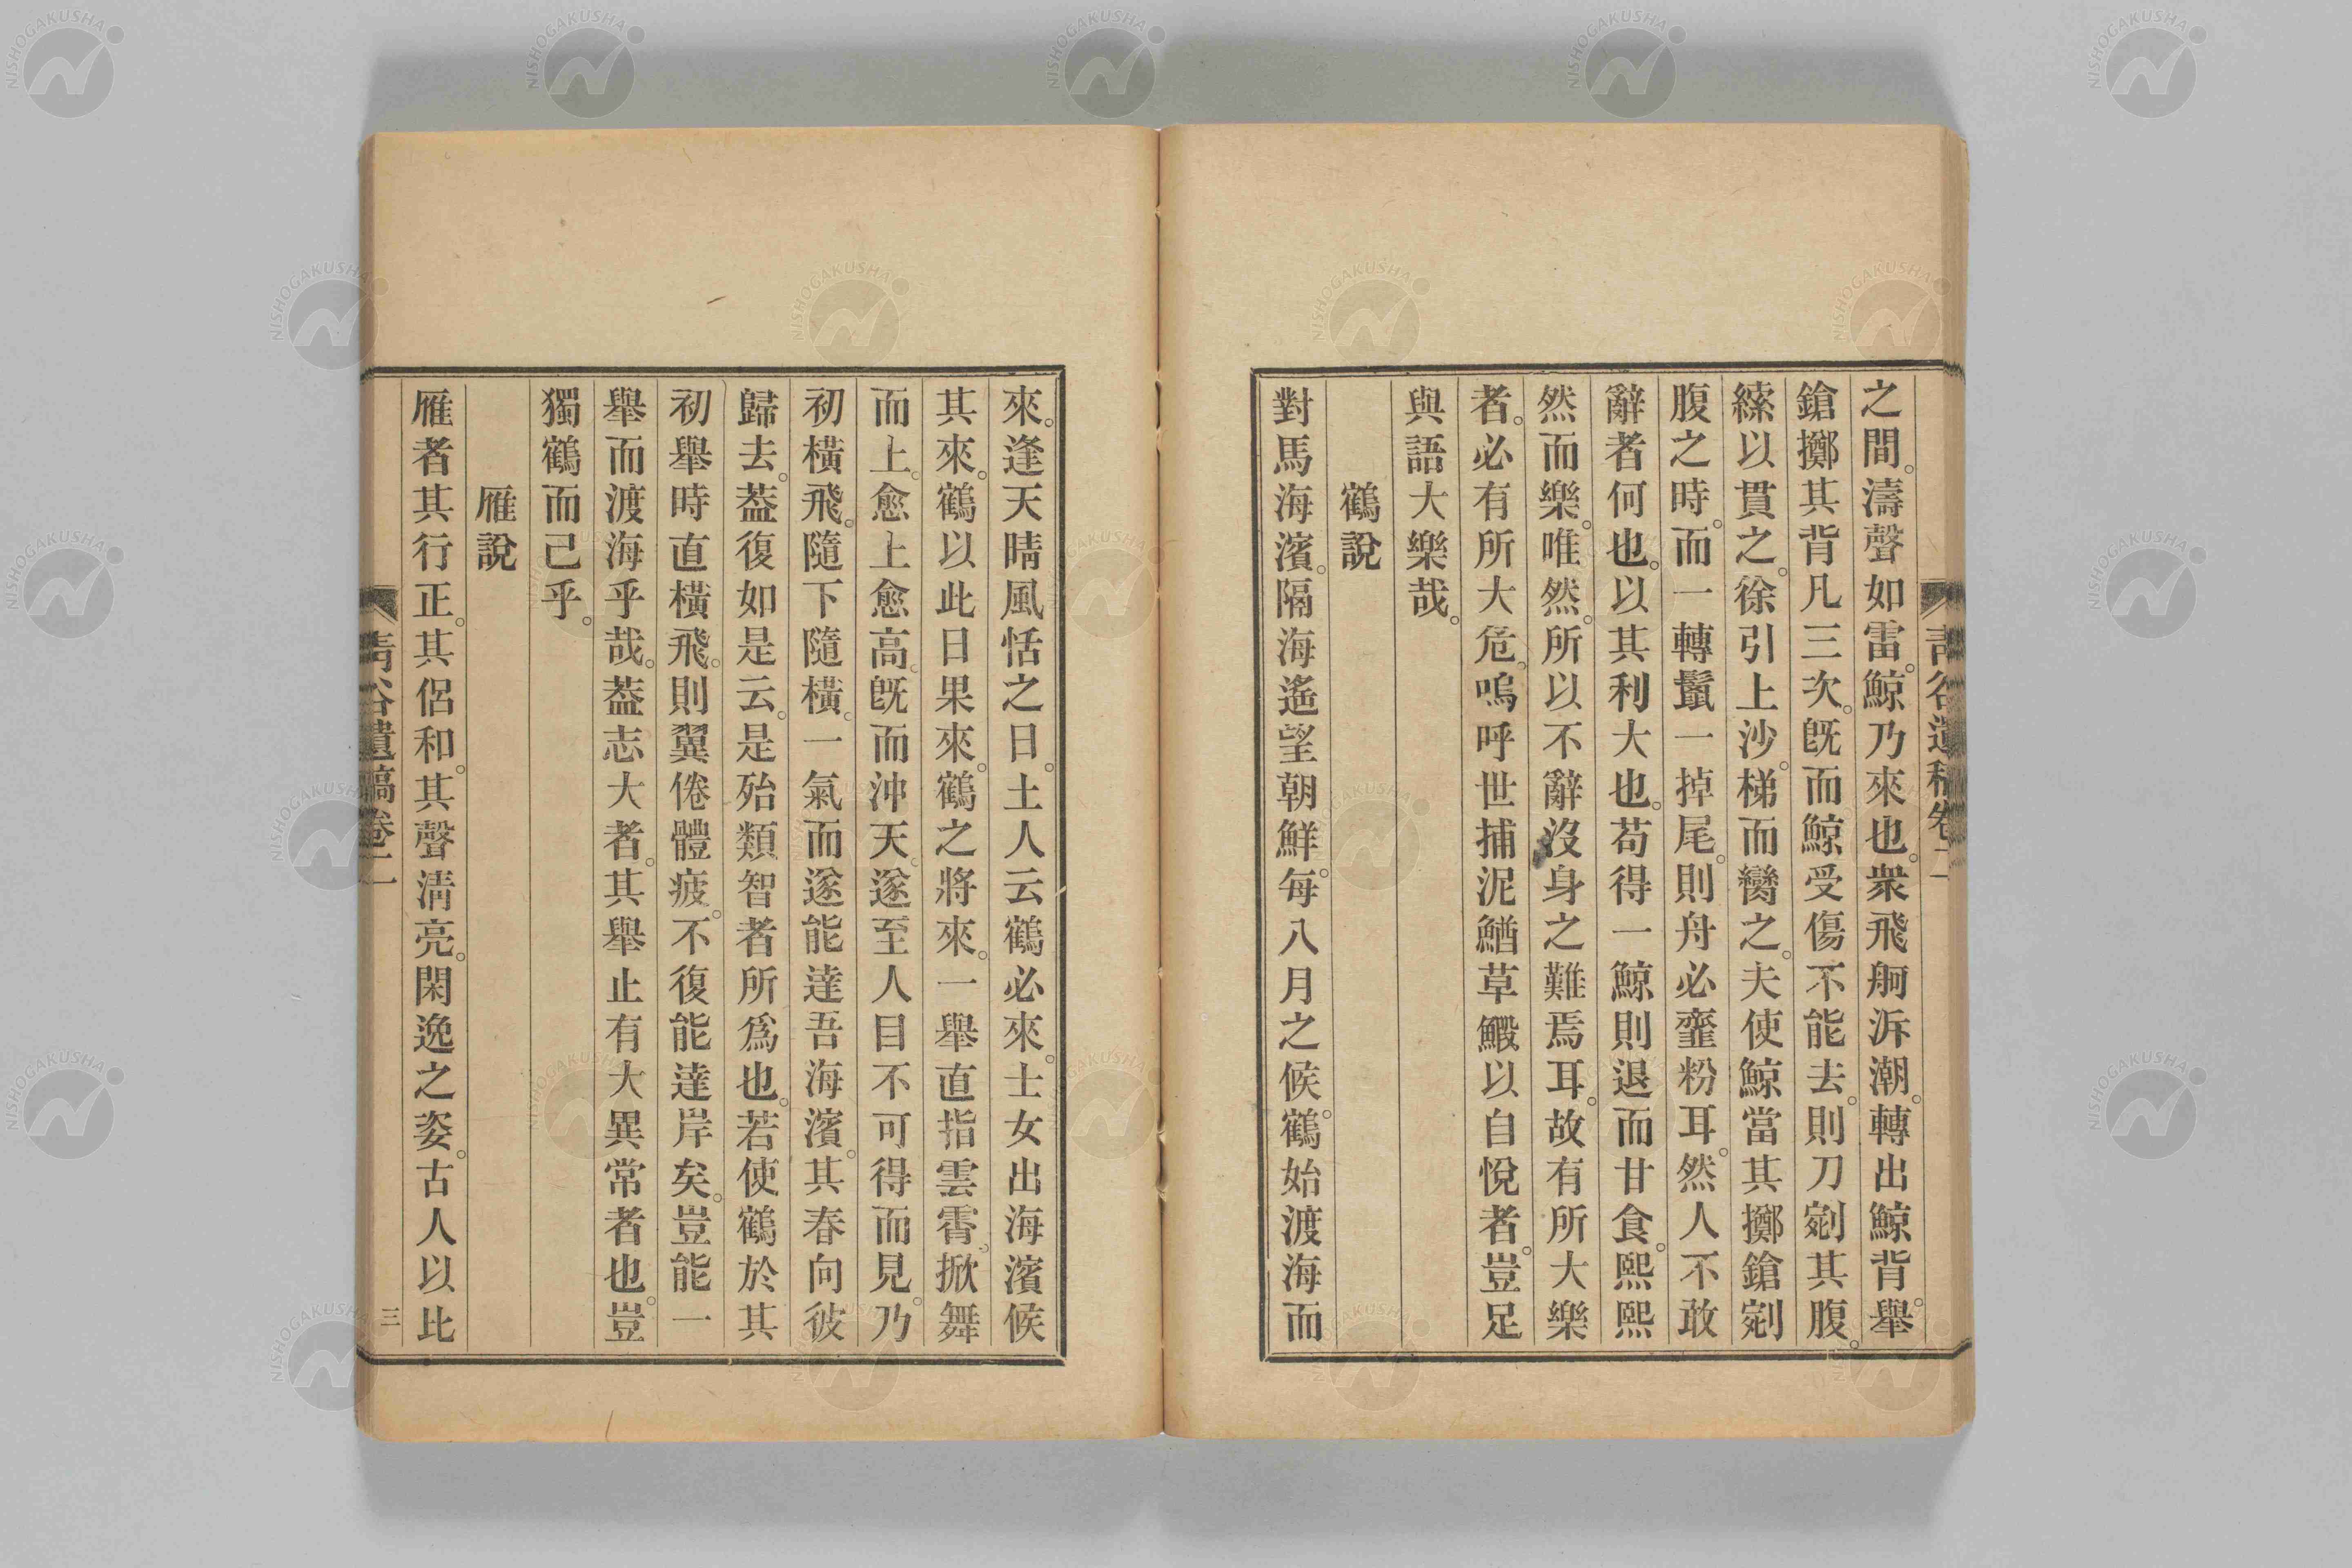 之間。濤聲如雷。鯨乃來也。衆飛舸泝潮。轉出鯨背。舉
鎗擲其背凡三次。既而鯨受傷不能去。則刀剜其腹。
縤以貫之。徐引上沙。梯而臠之。夫使鯨當其擲鎗剜
腹之時。而一轉鬣一掉尾。則舟必虀粉耳。然人不敢
辭者何也。以其利大也。苟得一鯨則退而甘食。熙熙
然而樂。唯然。所以不辭沒身之難焉耳。故有所大樂
者。必有所大危。嗚呼世捕泥鰌草鰕以自悅者。豈足
與語大樂哉。
鶴說
對馬海濱。隔海遙望朝鮮。每八月之候。鶴始渡海而
來。逢天晴風恬之日。土人云鶴必來。士女出海濱候
其來。鶴以此日果來。鶴之將來。一舉直指雲霄。掀舞
而上。愈上愈高。既而沖天。遂至人目不可得而見。乃
初橫飛。隨下隨橫。一氣而遂能達吾海濱。其春向彼
歸去。葢復如是云。是殆類智者所爲也。若使鶴於其
初舉時直橫飛。則翼倦體疲。不復能達岸矣。豈能一
舉而渡海乎哉。葢志大者。其舉止有大異常者也。豈
獨鶴而已乎。
雁說
雁者其行正。其侶和。其聲淸亮。閑逸之姿。古人以比
靑谷遺稿卷二
三
靑谷遺稿卷二
NISHOGAKUSHA